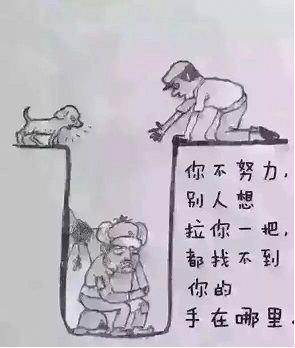 你不努力,
别人想
拉你一把,
都找不到
你的
手在哪里.